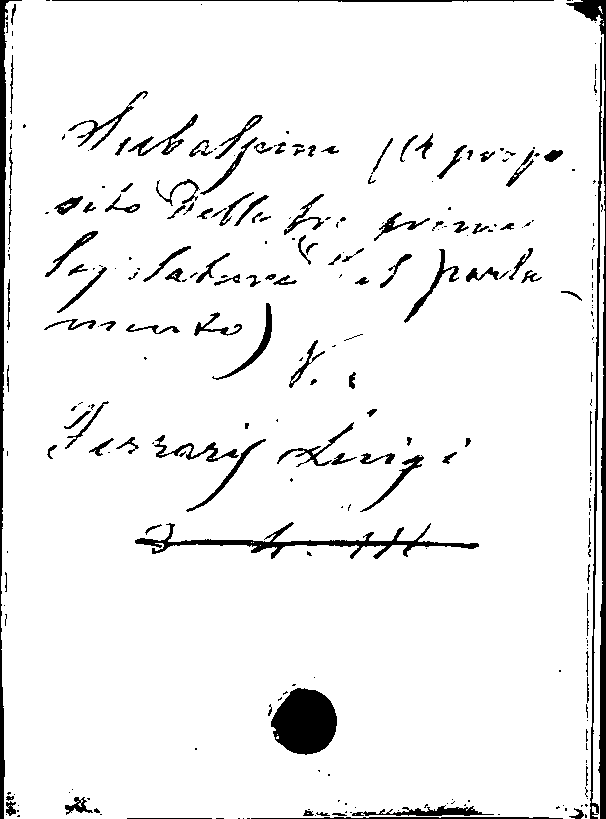 Subalpini (A propo
sito delle tre prime
legislature del parla-
mento)
V.
Ferraris Luigi
3 4. III